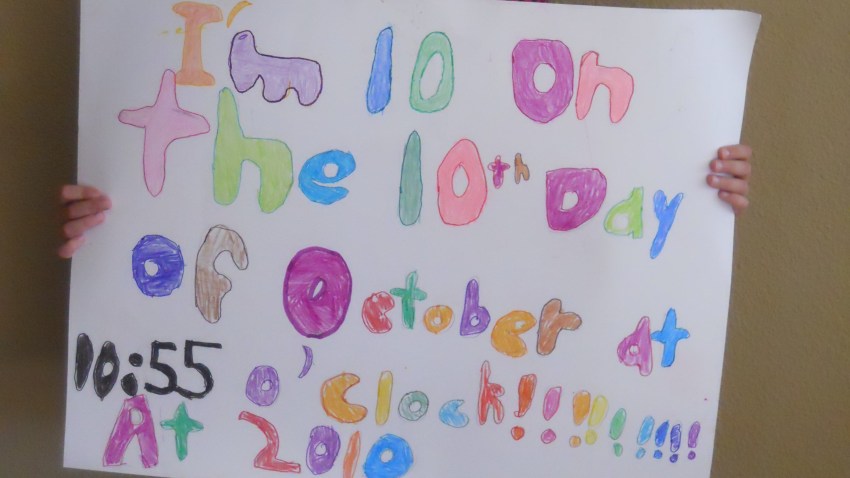 I'm 10 On
the 10th Day
of October at
10:55 o'clock!!!!!!!!!
At 2010